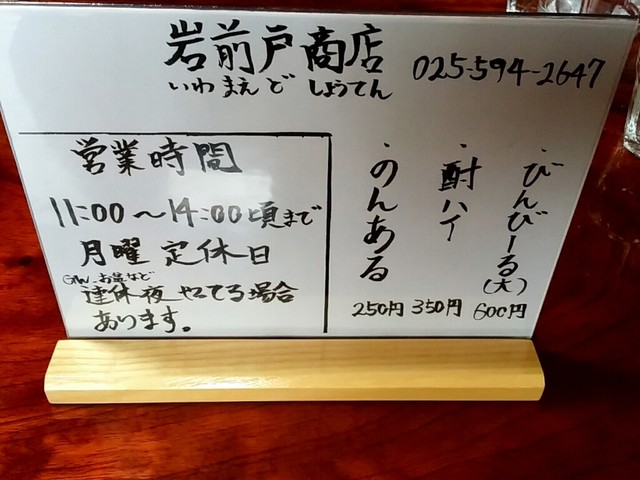 岩前戸商店
いわまえど しょうてん
025-594-2647
営業時間
11:00～14:00頃まで
月曜 定休日
GW、お盆など
連休夜やってる場合
あります。
・びんびーる(大)
600円
・酎ハイ
350円
・のんある
250円